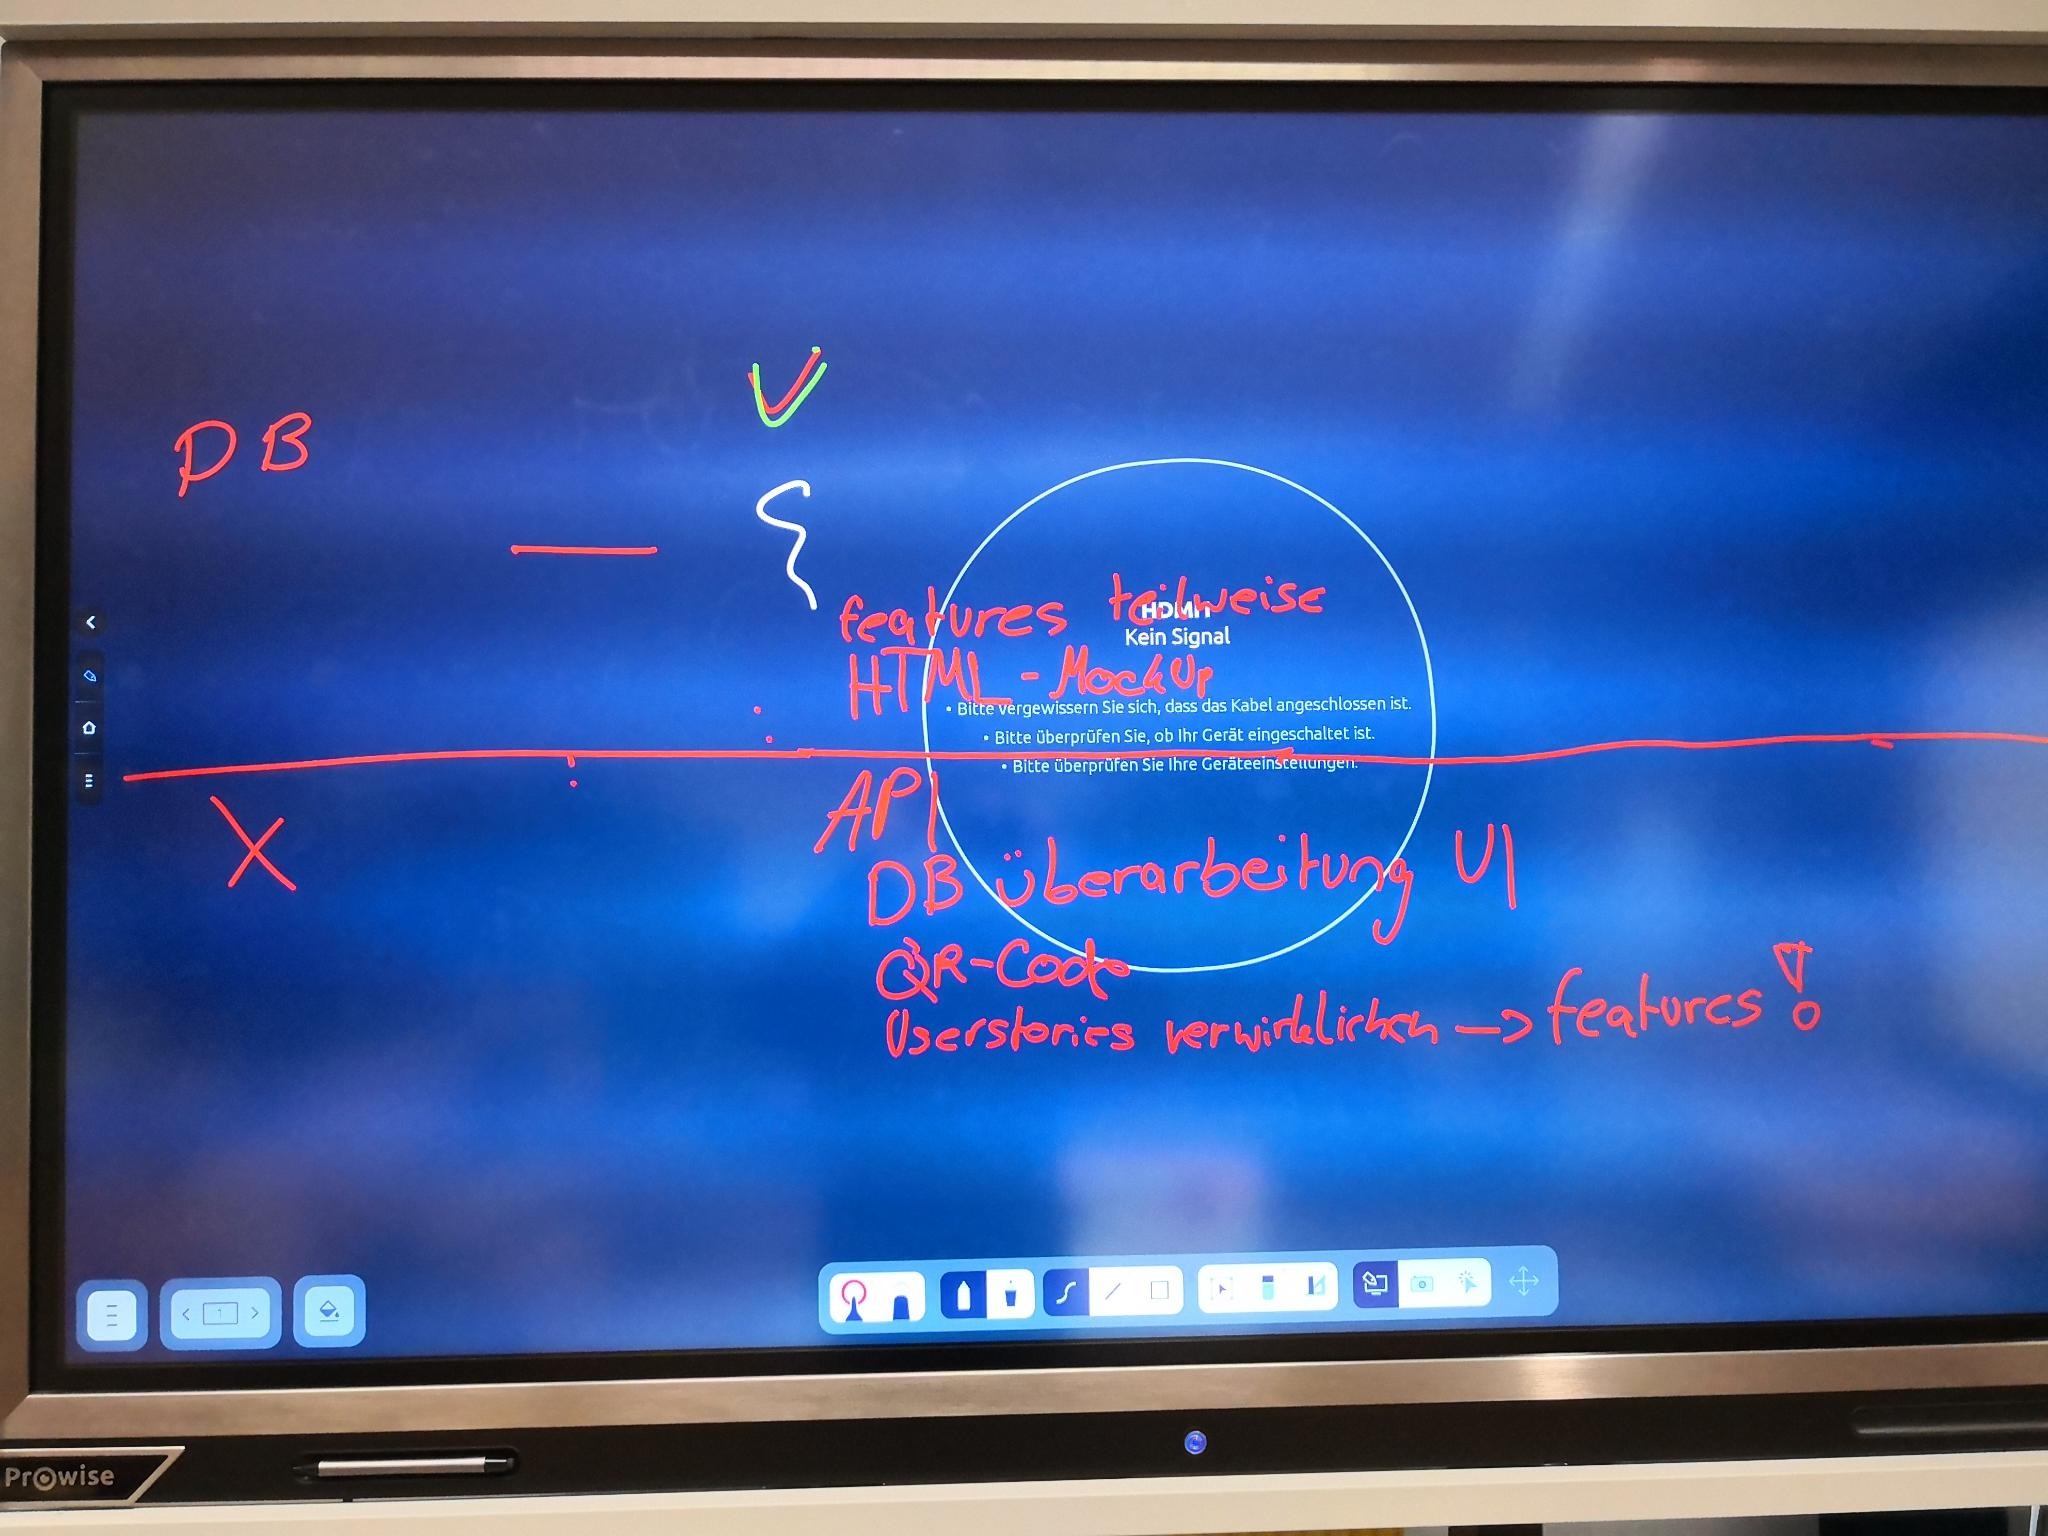 DB
features teilweise
HDMI1
Kein Signal
HTML-MockUp
• Bitte vergewissern Sie sich, dass das Kabel angeschlossen ist.
• Bitte überprüfen Sie, ob Ihr Gerät eingeschaltet ist.
• Bitte überprüfen Sie Ihre Geräteeinstellungen.
X
API
DB überarbeitung UI
QR-Code
Userstories verwirklichen → features!
1
Prowise